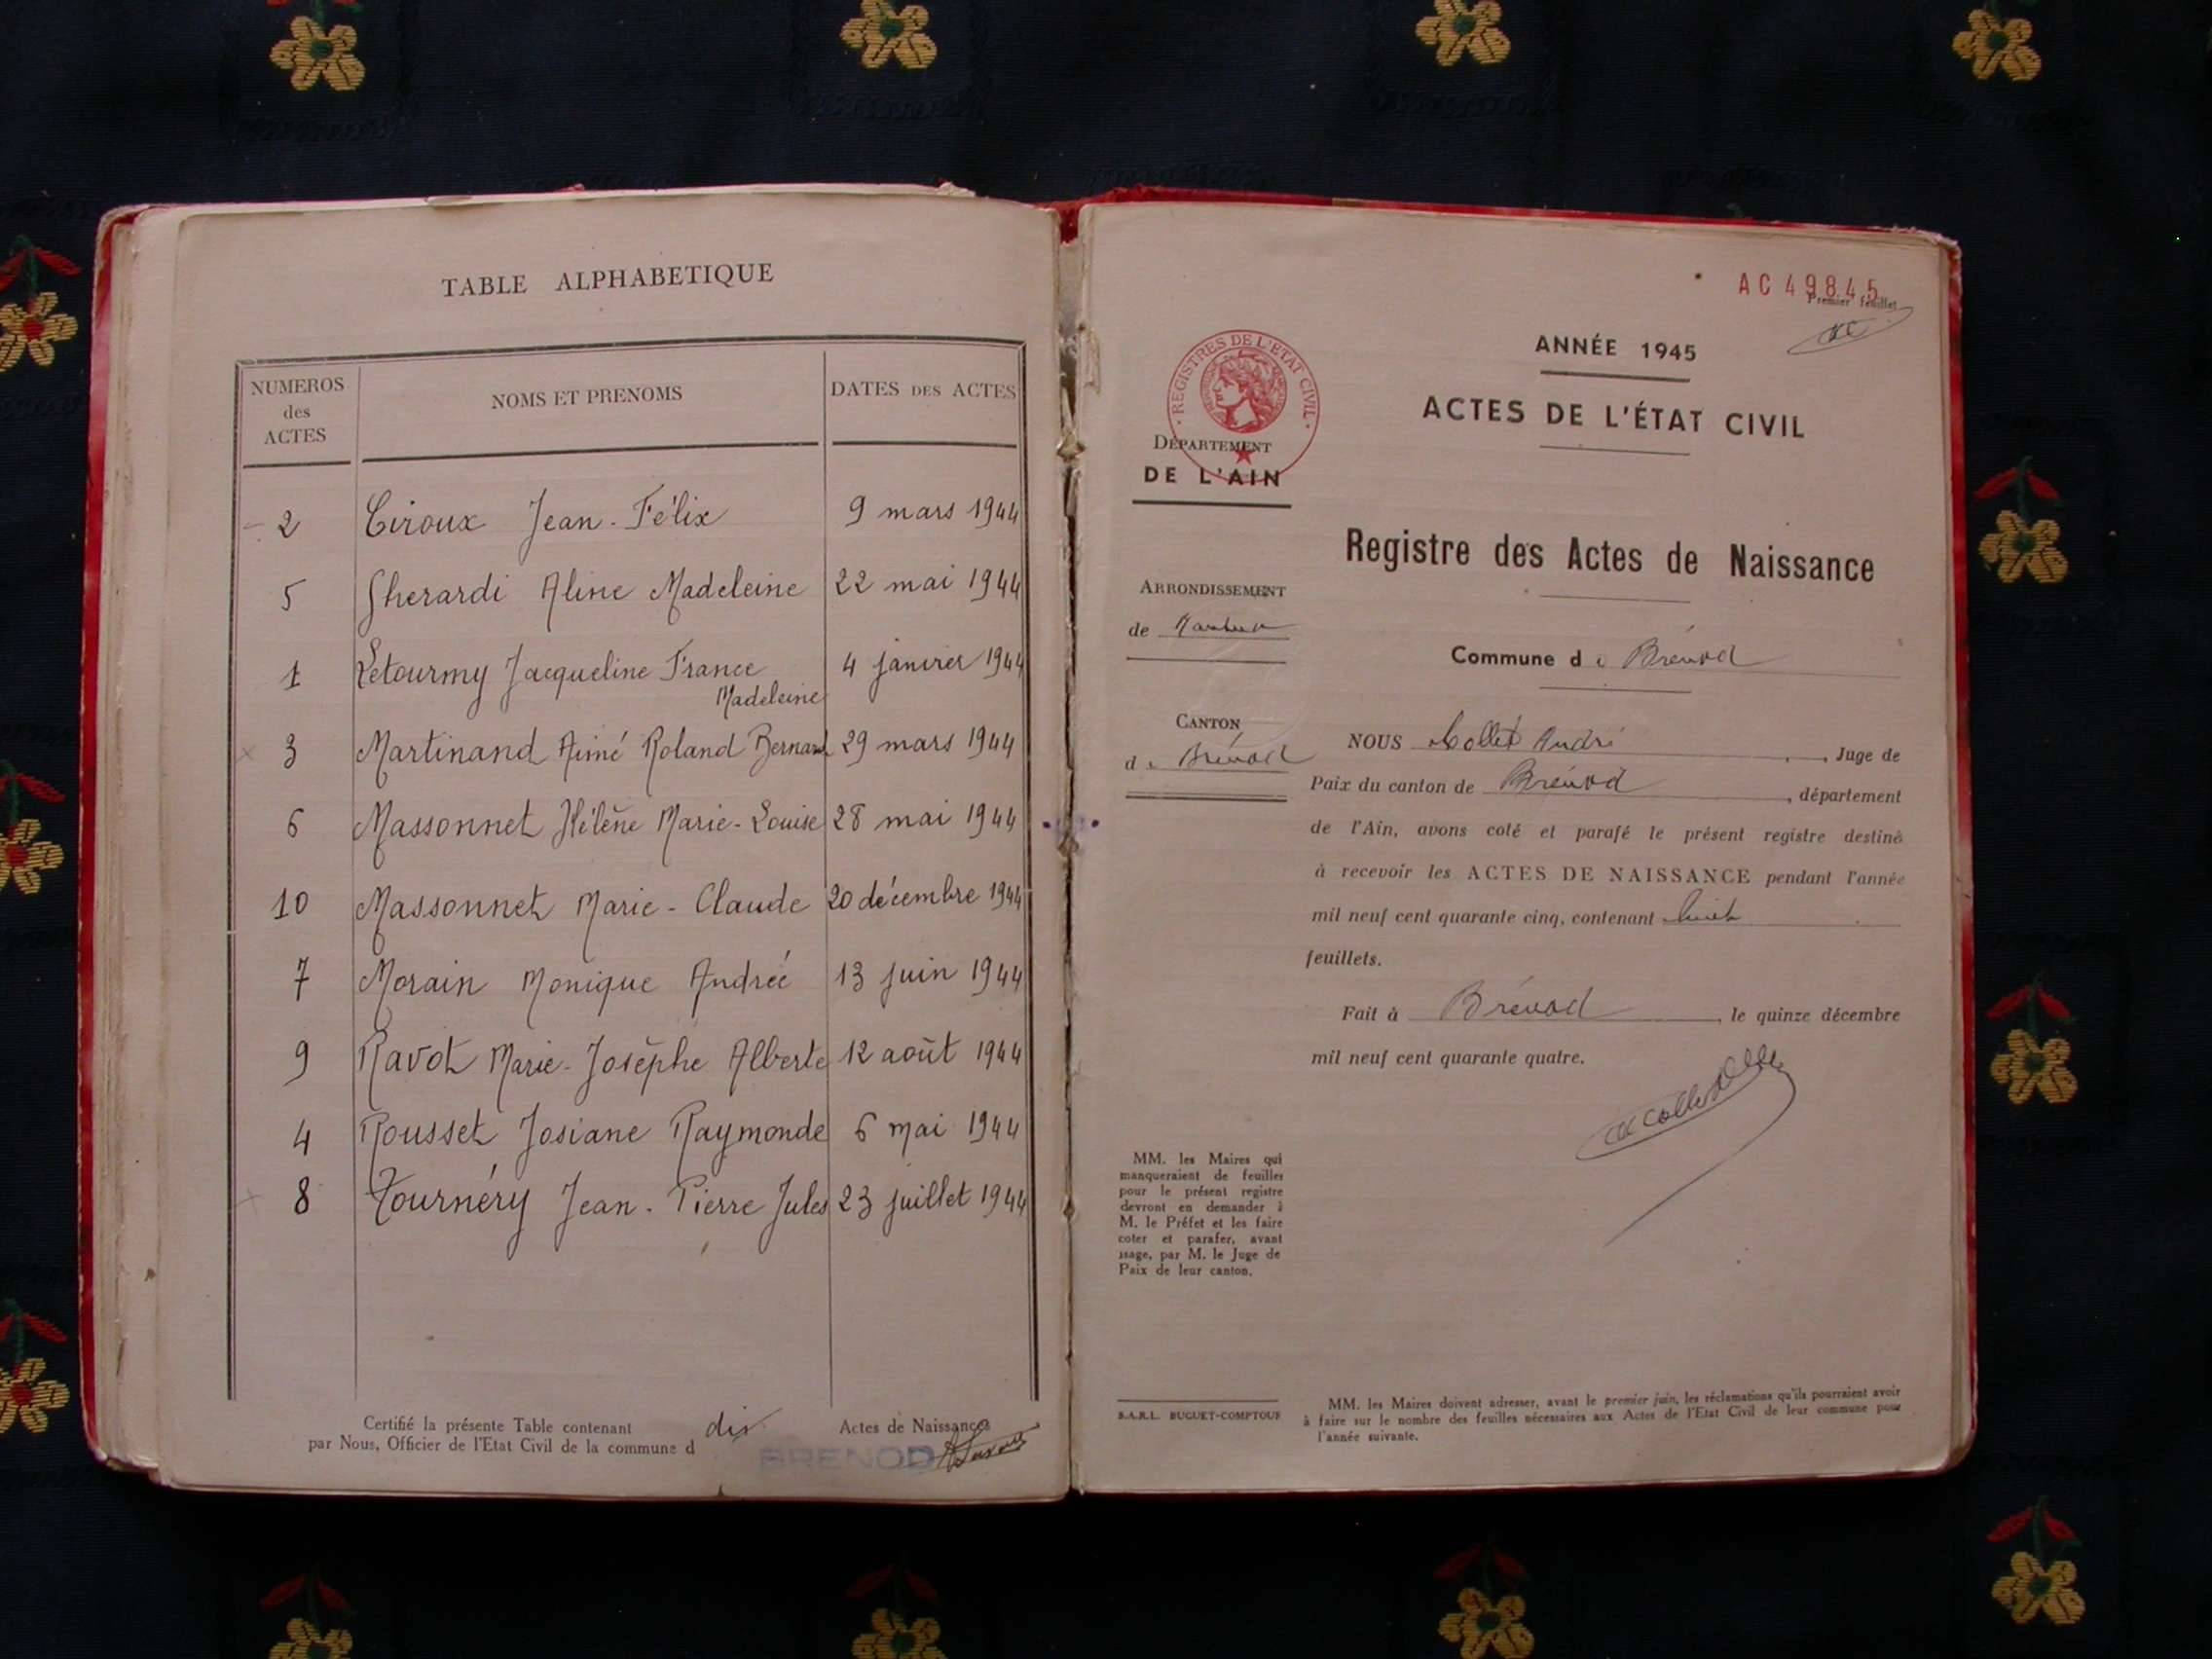 TABLE ALPHABETIQUE
NUMEROS des ACTES
NOMS ET PRENOMS
DATES DES ACTES
2 Ciroux Jean-Félix 9 mars 1944
5 Gherardi Aline Madeleine 22 mai 1944
1 Letourmy Jacqueline France 4 janvier 1944
Madeleine
3 Martinand Aimé Roland Bernard 29 mars 1944
6 Massonnet Hélène Marie-Louise 28 mai 1944
10 Massonnet Marie-Claude 20 décembre 1944
7 Morain Monique Andrée 13 juin 1944
9 Ravot Marie-Josèphe Alberte 12 août 1944
4 Rousset Josiane Raymonde 6 mai 1944
8 Tournéry Jean-Pierre Jules 23 juillet 1944
Certifié la présente Table contenant dix Actes de Naissances
par Nous, Officier de l'Etat Civil de la commune d BRENOD
AC 49845
Premier feuillet
REGISTRES DE L'ETAT CIVIL
DÉPARTEMENT
DE L'AIN
ANNÉE 1945
ACTES DE L'ÉTAT CIVIL
Registre des Actes de Naissance
ARRONDISSEMENT
de Nantua
Commune de Brénod
CANTON
de Brénod
NOUS Collet André, Juge de
Paix du canton de Brénod, département
de l'Ain, avons coté et parafé le présent registre destiné
à recevoir les ACTES DE NAISSANCE pendant l'année
mil neuf cent quarante cinq, contenant huit
feuillets.
Fait à Brénod, le quinze décembre
mil neuf cent quarante quatre.
MM. les Maires qui
manqueraient de feuilles
pour le présent registre
devront en demander à
M. le Préfet et les faire
coter et parafer, avant
usage, par M. le Juge de
Paix de leur canton.
S.A.R.L. BUGUET-COMPTOUR
MM. les Maires doivent adresser, avant le premier juin, les réclamations qu'ils pourraient avoir
à faire sur le nombre des feuilles nécessaires aux Actes de l'Etat Civil de leur commune pour
l'année suivante.